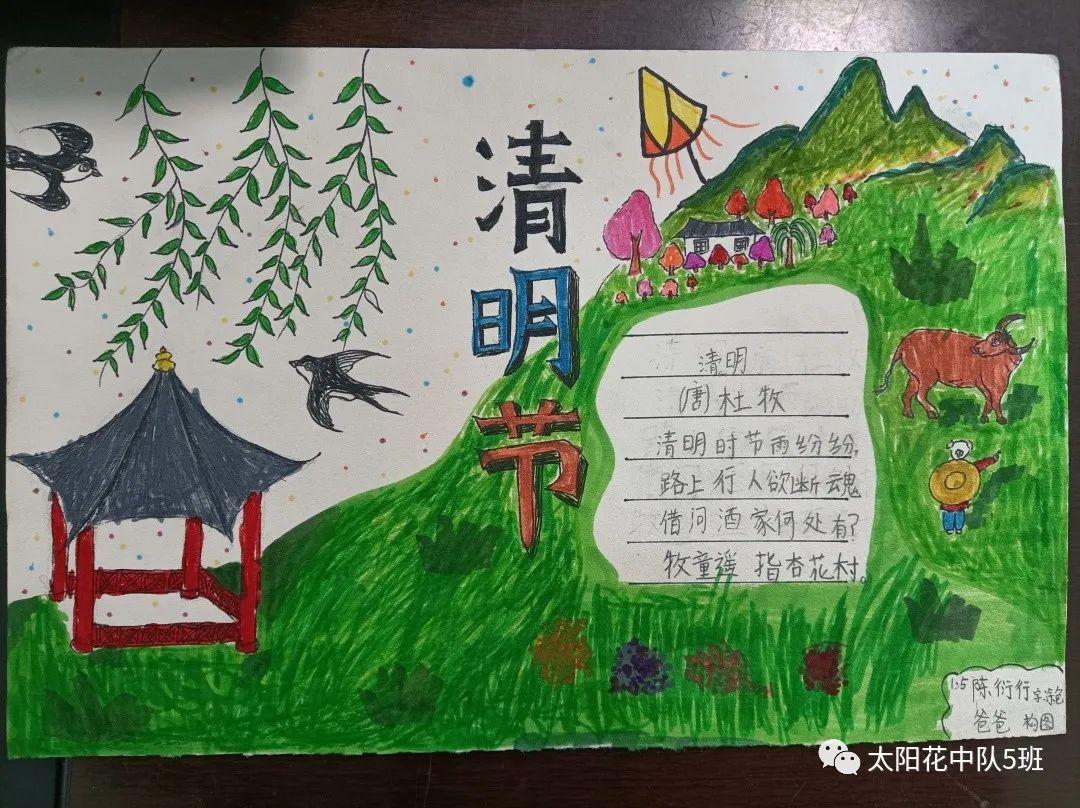 清明节
清明
(唐)杜牧
清明时节雨纷纷,
路上行人欲断魂
借问酒家何处有?
牧童遥指杏花村。
1:5 陈衍行
爸爸 构图
太阳花中队5班